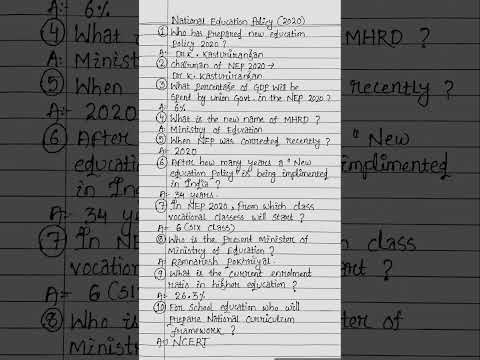 National Education Policy (2020)
① Who has prepared new education
Policy 2020 ?
A:- Dr. K. Kasturirangan
② Chairman of NEP 2020 →
Dr. K. Kasturirangan
③ What percentage of GDP will be
spent by union Govt. in the NEP 2020 ?
A:- 6%
④ What is the new name of MHRD ?
A:- Ministry of Education
⑤ When NEP was corrected recently ?
A:- 2020
⑥ After how many years a "New
education policy" is being implimented
in India ?
A:- 34 years.
⑦ In NEP 2020, from which class
vocational classess will start ?
A:- 6 (six class)
⑧ Who is the Present Minister of
Ministry of Education ?
A:- Ramnaresh Pokhriyal.
⑨ What is the current enrolment
ratio in higher education ?
A:- 26.3%
⑩ For School education who will
Prepare National Curriculum
framework ?
A:- NCERT
A:- 6%
④ What
A:- Ministr
⑤ When
A:- 2020
⑥ After
educati
in Ind
A:- 34 ye
⑦ In NE
vocation
A:- 6 (six
⑧ Who is
Ministr
MHRD ?
recently ?
"New
implimented
ch class
art ?
er of